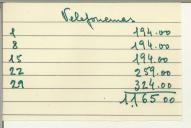 Telefonemas
1 194.00
8 194.00
15 194.00
22 259.00
29 324.00
1165.00